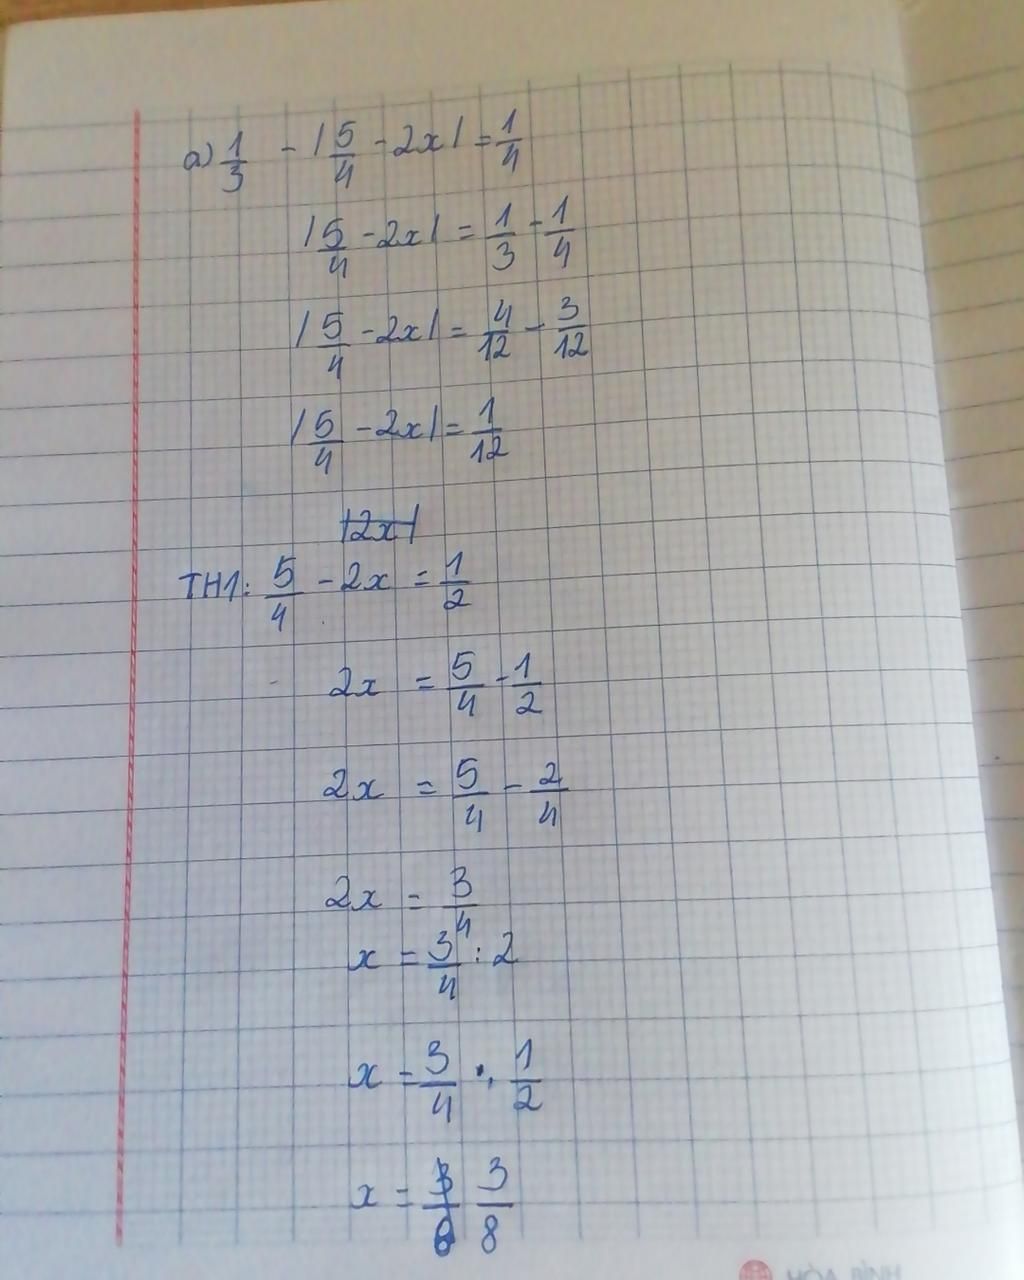 a) 1/3 - |5/4 - 2x| = 1/4
|5/4 - 2x| = 1/3 - 1/4
|5/4 - 2x| = 4/12 - 3/12
|5/4 - 2x| = 1/12
|2x|
TH1: 5/4 - 2x = 1/2
2x = 5/4 - 1/2
2x = 5/4 - 2/4
2x = 3/4
x = 3/4 : 2
x = 3/4 . 1/2
x = 3/8